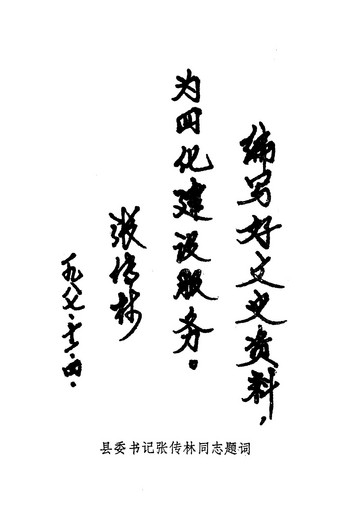 编写好文史资料，
为四化建设服务。
张传林
一九八七.十二.四.
县委书记张传林同志题词